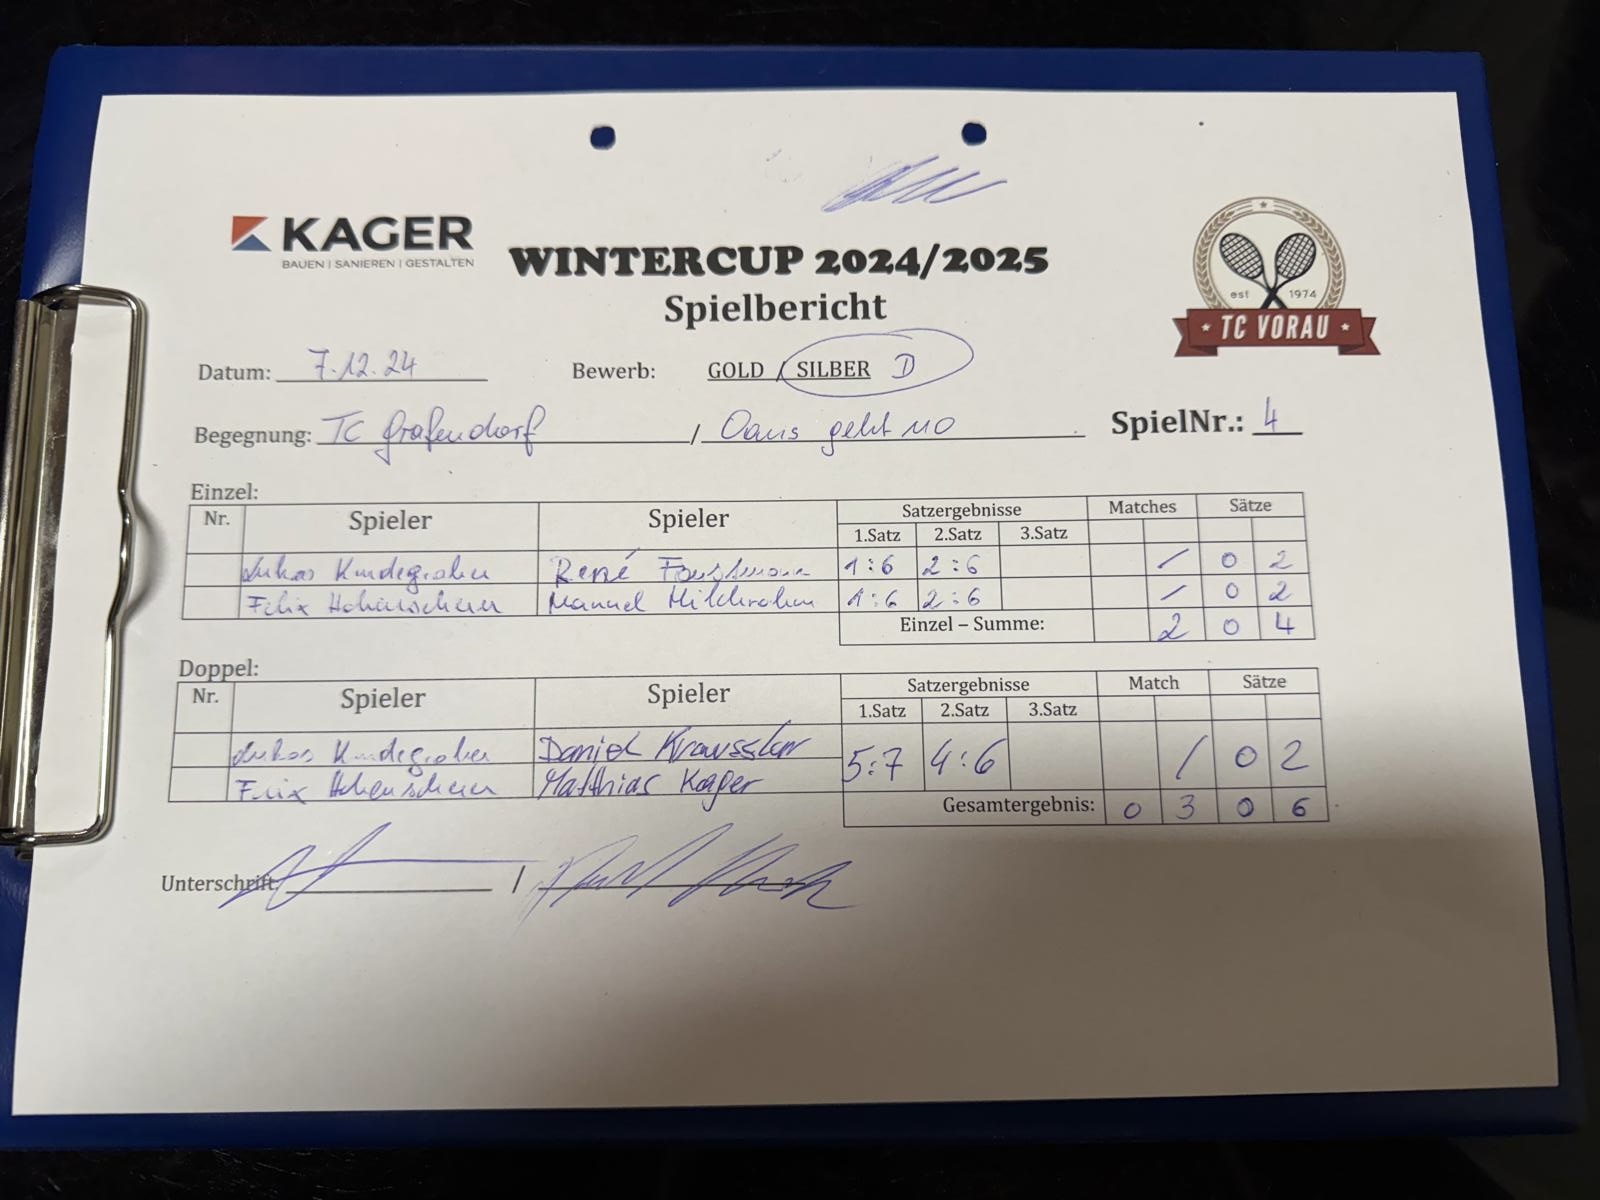 KAGER
BAUEN | SANIEREN | GESTALTEN
WINTERCUP 2024/2025
Spielbericht
est 1974
TC VORAU
Datum: 7.12.24 Bewerb: GOLD / SILBER D
Begegnung: TC Grafendorf / Oans geht no SpielNr.: 4
Einzel:
Nr. Spieler Spieler Satzergebnisse Matches Sätze
1.Satz 2.Satz 3.Satz
Lukas René 1:6 2:6 / 0 2
Felix Manuel 1:6 2:6 / 0 2
Einzel – Summe: 2 0 4
Doppel:
Nr. Spieler Spieler Satzergebnisse Match Sätze
1.Satz 2.Satz 3.Satz
Lukas Daniel Kraussler 5:7 4:6 / 0 2
Felix Matthias Kager
Gesamtergebnis: 0 3 0 6
Unterschrift: /